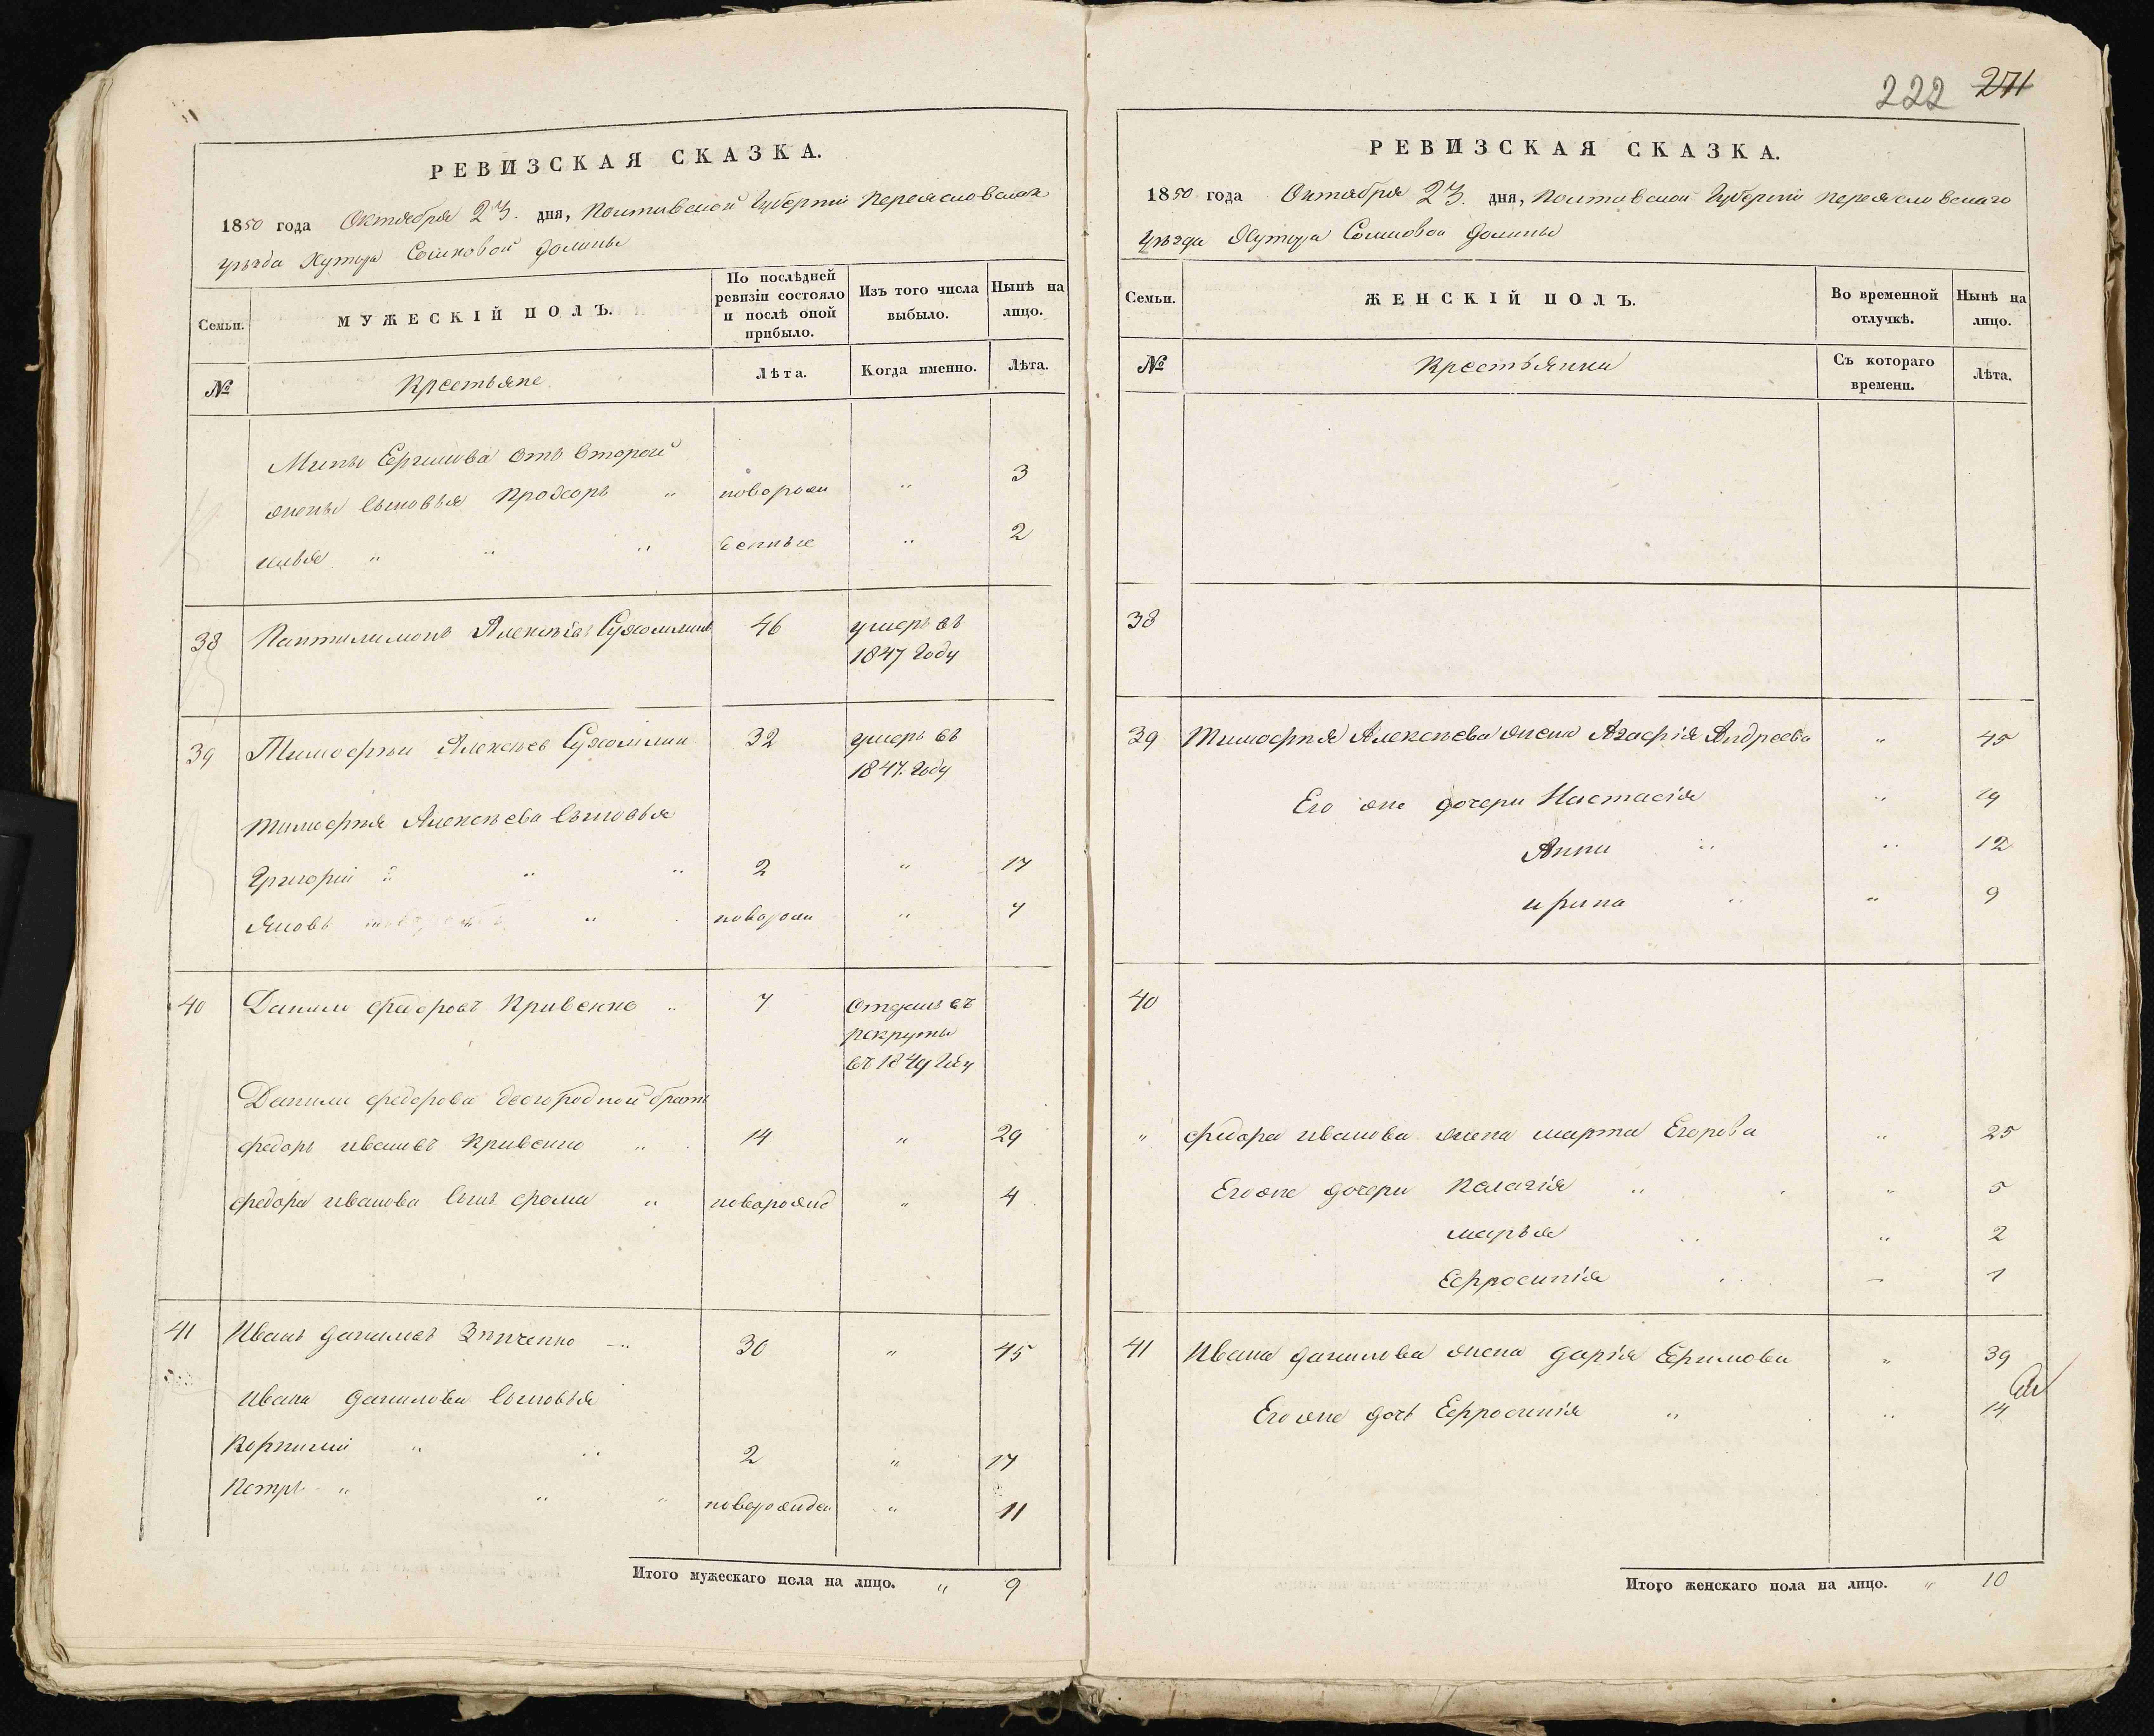 РЕВИЗСКАЯ СКАЗКА.
1850 года Октября 23. дня, Полтавской Губернии Переясловскаго
уѣзда Хутора Сомковой долины
Семьи.
МУЖЕСКІЙ ПОЛЪ.
По послѣдней
ревизіи состояло
и послѣ оной
прибыло.
Изъ того числа
выбыло.
Нынѣ на
лицо.
№
Крестьяне
Лѣта.
Когда именно.
Лѣта.
Мины Ефимова отъ второй
жены сыновья Прохоръ " новорож " 3
илья " " " денные " 2
38 Пантилимонъ Алексѣевъ Сухомлинъ 46 умеръ въ
1847 году
39 Тимофѣй Алексѣев Сухомлин 32 умеръ въ
1847. году
тимофѣя Алексѣева сыновья
Григорій " " " 2 " 17
Яковъ " новорож " 7
40 Данило федоровъ Кривенко " 7 отданъ въ
рекруты
въ 1849 году
Данила федорова двоюродной братъ
федоръ ивановъ Кривенко " 14 " 29
федора иванова сынъ фома " новорожд " 4
41 Иванъ данилов Зѣнченко " 30 " 45
ивана данилова сыновья
Корнилій " " 2 " 17
Петръ " " " новорожден " 11
Итого мужескаго пола на лицо. " 9
222 271
РЕВИЗСКАЯ СКАЗКА.
1850 года Октября 23. дня, Полтавской Губерніи переясловскаго
уѣзда Хутора Сомковой долины
Семьи.
ЖЕНСКІЙ ПОЛЪ.
Во временной
отлучкѣ.
Нынѣ на
лицо.
№
Крестьянки
Съ котораго
времени.
Лѣта.
38
39 тимофѣя Алексѣева жена Агафія Андреева " 45
Его же дочери Настасія " 19
Анна " " 12
ирина " " 9
40
" федора иванова жена марта Егорова " 25
Его же дочери Палагія " " 5
марья " " 2
Ефросинія " 1
41 Ивана данилова жена дарія Ефимова " 39
Его же дочь Ефросинія " " 14
Итого женскаго пола на лицо. " 10